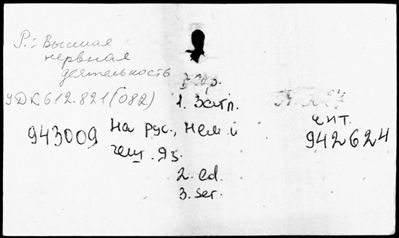 Р.: Высшая
нервная
деятельность
УДК 612.821(082)
1. Загл.
943009
на рус., нем. і
чит.
942624
яз.
2. ed.
3. ser.